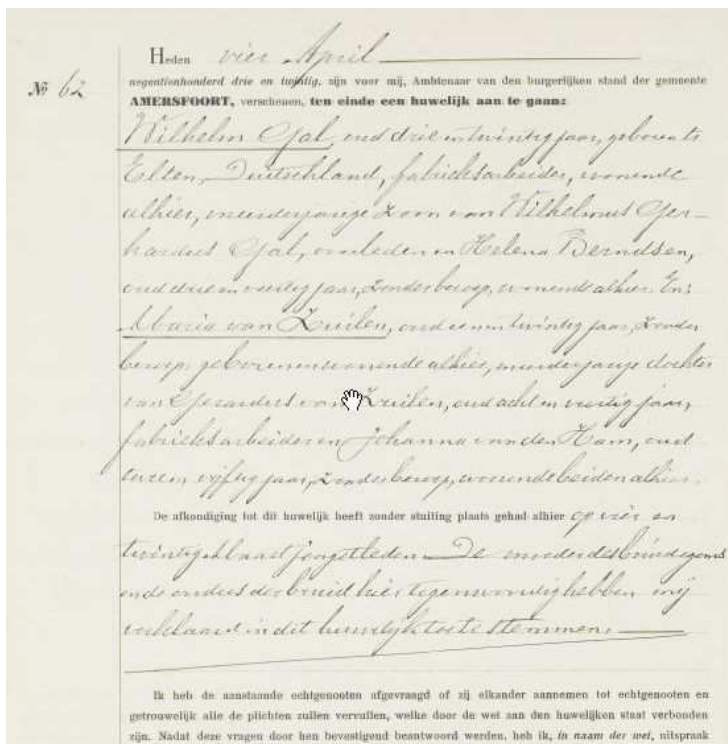 Heden vier April
№ 62
negentienhonderd drie en twintig, zijn voor mij, Ambtenaar van den burgerlijken stand der gemeente
AMERSFOORT, verschenen, ten einde een huwelijk aan te gaan:
Wilhelm Gal, oud drie en twintig jaar, geboren te
Elten, Duitschland, fabrieksarbeider, wonende
alhier, meerderjarige zoon van Wilhelmus Ger-
hardus Gal, overleden en Helena Berndsen,
oud drie en veertig jaar, zonder beroep, wonende alhier. En:
Maria van Zuilen, oud een en twintig jaar, zonder
beroep, geboren en wonende alhier, meerderjarige dochter
van Gerardus van Zuilen, oud acht en veertig jaar,
fabrieksarbeider en Johanna van den Ham, oud
twee en vijftig jaar, zonder beroep, wonende beiden alhier.
De afkondiging tot dit huwelijk heeft zonder stuiting plaats gehad alhier op vier en
twintig Maart jongstleden. De moeder des bruidegoms
en de ouders der bruid hier tegenwoordig hebben mij
verklaard in dit huwelijk toe te stemmen.
Ik heb de aanstaande echtgenooten afgevraagd of zij elkander aannemen tot echtgenooten en
getrouwelijk alle de plichten zullen vervullen, welke door de wet aan den huwelijken staat verbonden
zijn. Nadat deze vragen door hen bevestigend beantwoord werden, heb ik, in naam der wet, uitspraak